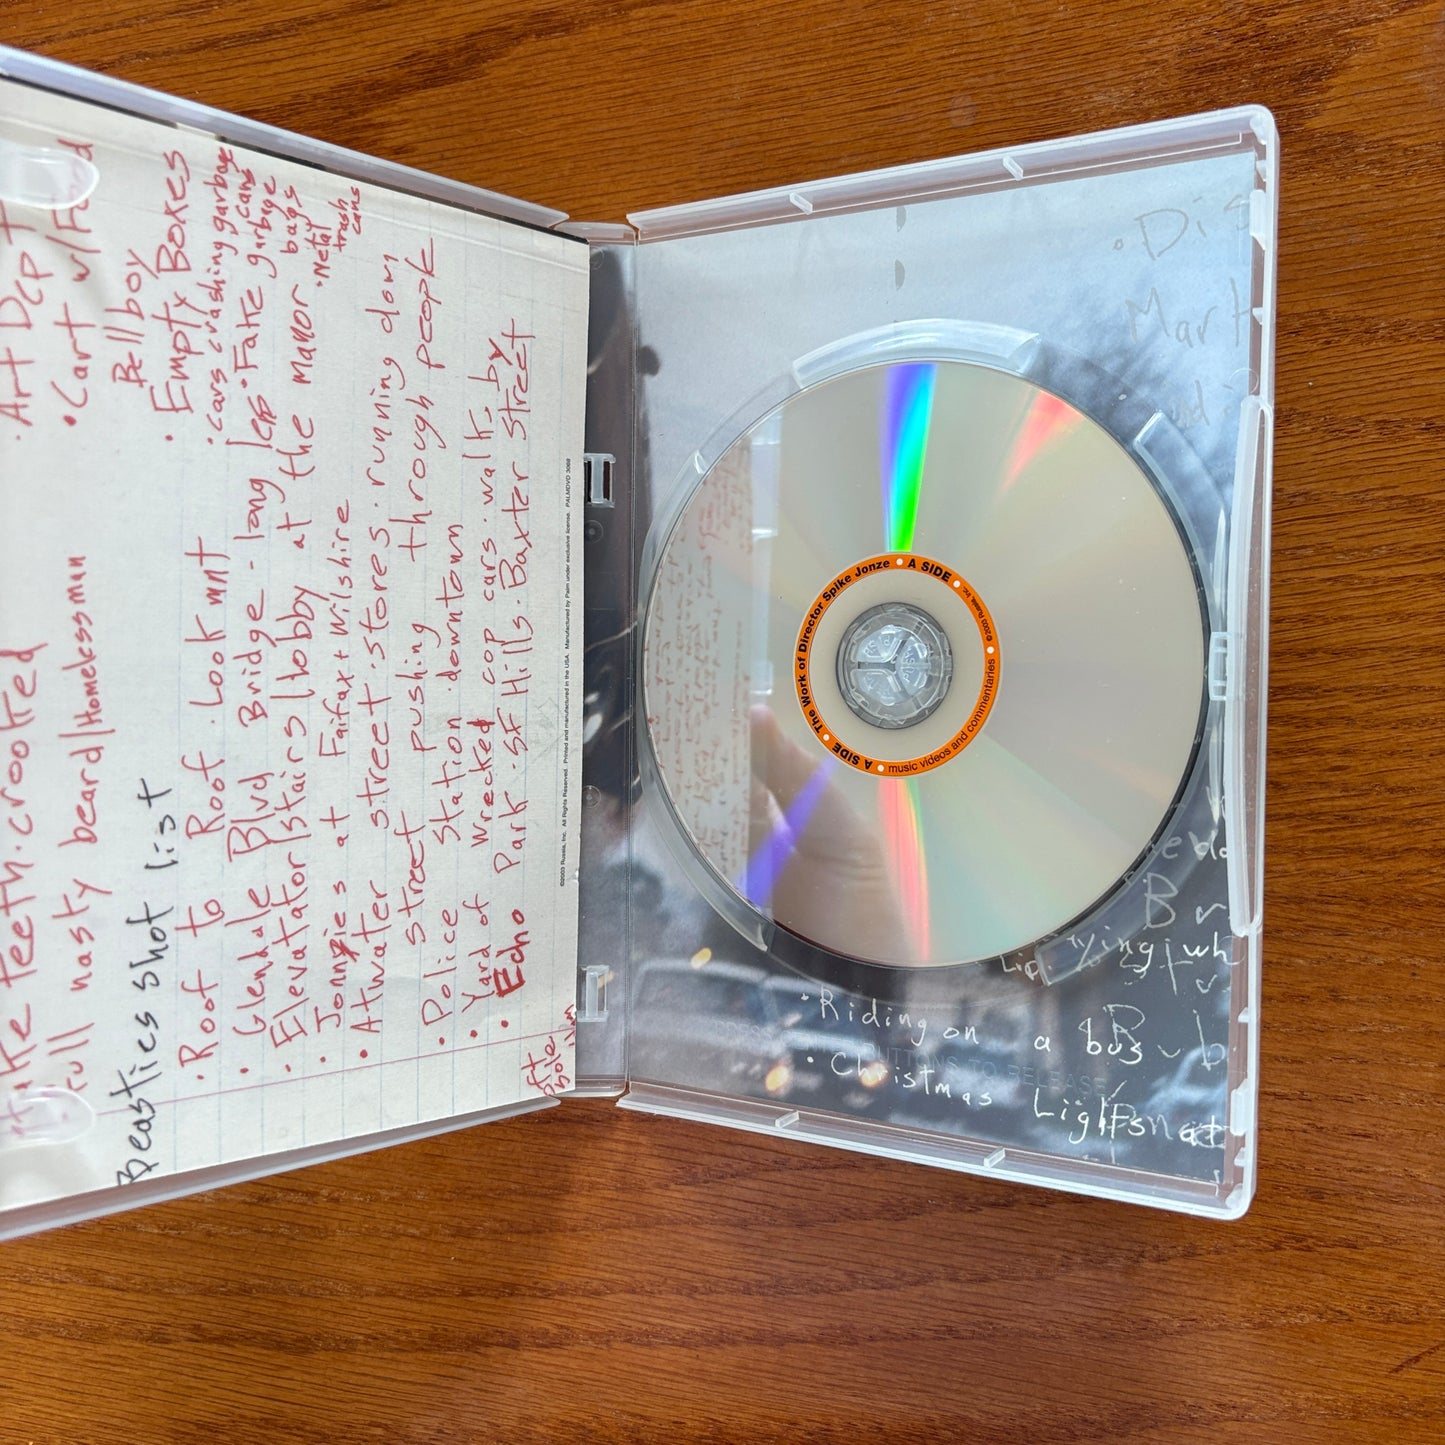 teeth.crooked
full nasty beard/Homelessman
• Art Dep
• Cart w/
Bellboy
• Empty Boxes
Beasties shot list
• Roof to Roof. Lookmnt
• cars crashing garbage cans
• Glendale Blvd Bridge - long lens
• Fake garbage bags
• Elevator/stairs/lobby at the manor
• Metal trash cans
• Jonnies at Fairfax + Wilshire
• Atwater street. stores. running down
street pushing through people
• Police Station. downtown
• Yard of wrecked cop cars. walk by
• Echo Park. SF Hills. Baxter Street
©2003 Palm, Inc. All Rights Reserved. Printed and manufactured in the USA. Manufactured by Palm under exclusive license. PALMDVD 3068
A SIDE • The Work of Director Spike Jonze • A SIDE •
music videos and commentaries •
• Riding on a bus
• Christmas Lights
BUTTONS TO RELEASE